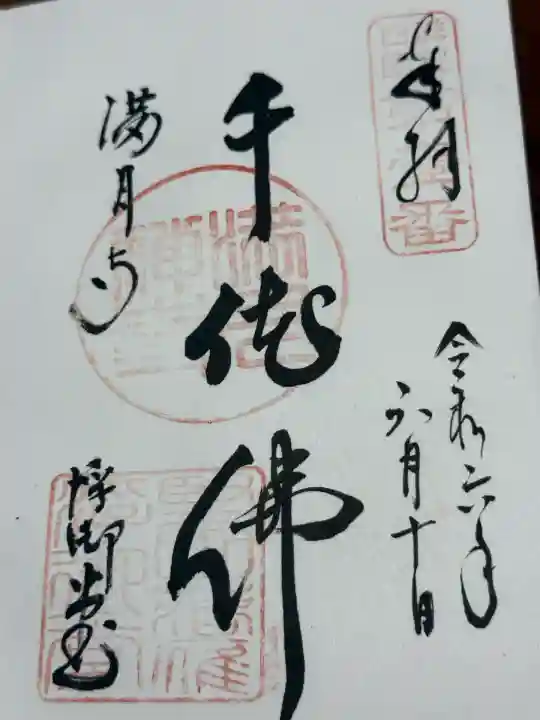 奉拝
令和六年
六月十日
千体佛
満月寺
浮御堂